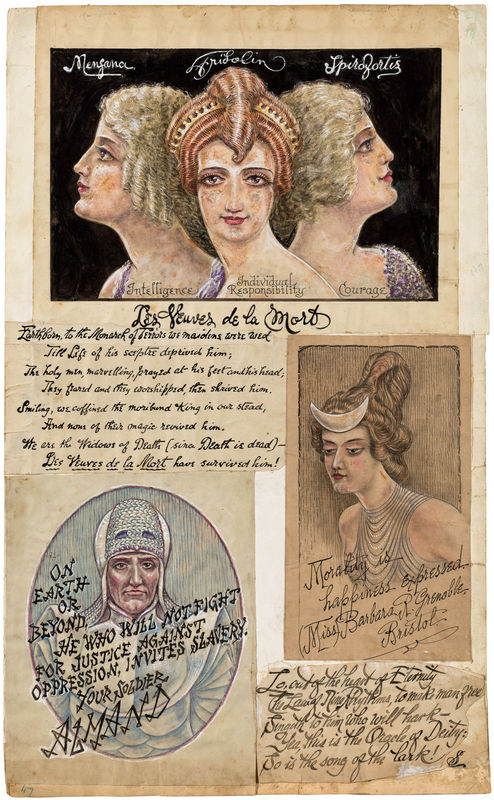 Mengana
Spirofortis
Intelligence
Individual
Responsibility
Courage
Les Veuves de la Mort
Earthborn, to the Monarch of Terrors we masdens were wed
Till Life of his sceptre deprived him;
The holy men, marvelling, prayed at his feet and his head;
They feared and they worshipped, then shrived him.
Smiling, we coffined the moribund King in our stead,
And none of their magic revived him.
We are the Widows of Death (since Death is dead)—
Les Veuves de la Mort have survived him!
Morality is
happiness expressed
(Miss) Barbara R. Grenoble.
Bristol.
ON
EARTH
OR
BEYOND,
HE WHO WILL NOT FIGHT
FOR JUSTICE AGAINST
OPPRESSION, INVITES SLAVERY.
YOUR SOLDIER
ALMAND
Lo, out of the heart of Eternity
New Rythms, to make man free
Singeth to him who will hark
Yea, this is the Oracle of Deity:
So is the song of the lark!
47